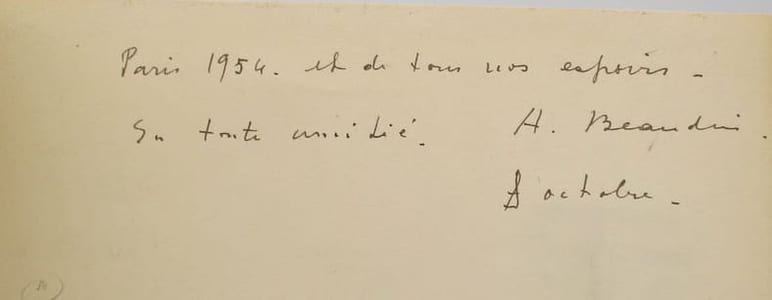 Paris 1954. et de tous nos espoirs -
En toute amitié. A. Beaudin.
8 octobre -